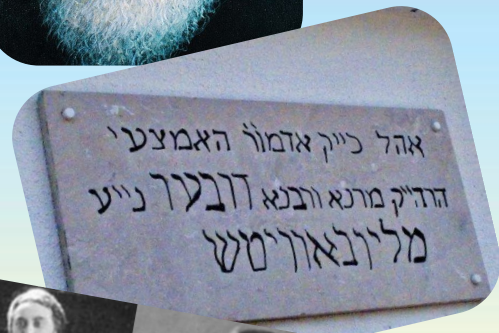 אהל כ״ק אדמו״ר האמצעי
הרה״ק מרנא ורבנא דובער נ״ע
מליובאוויטש